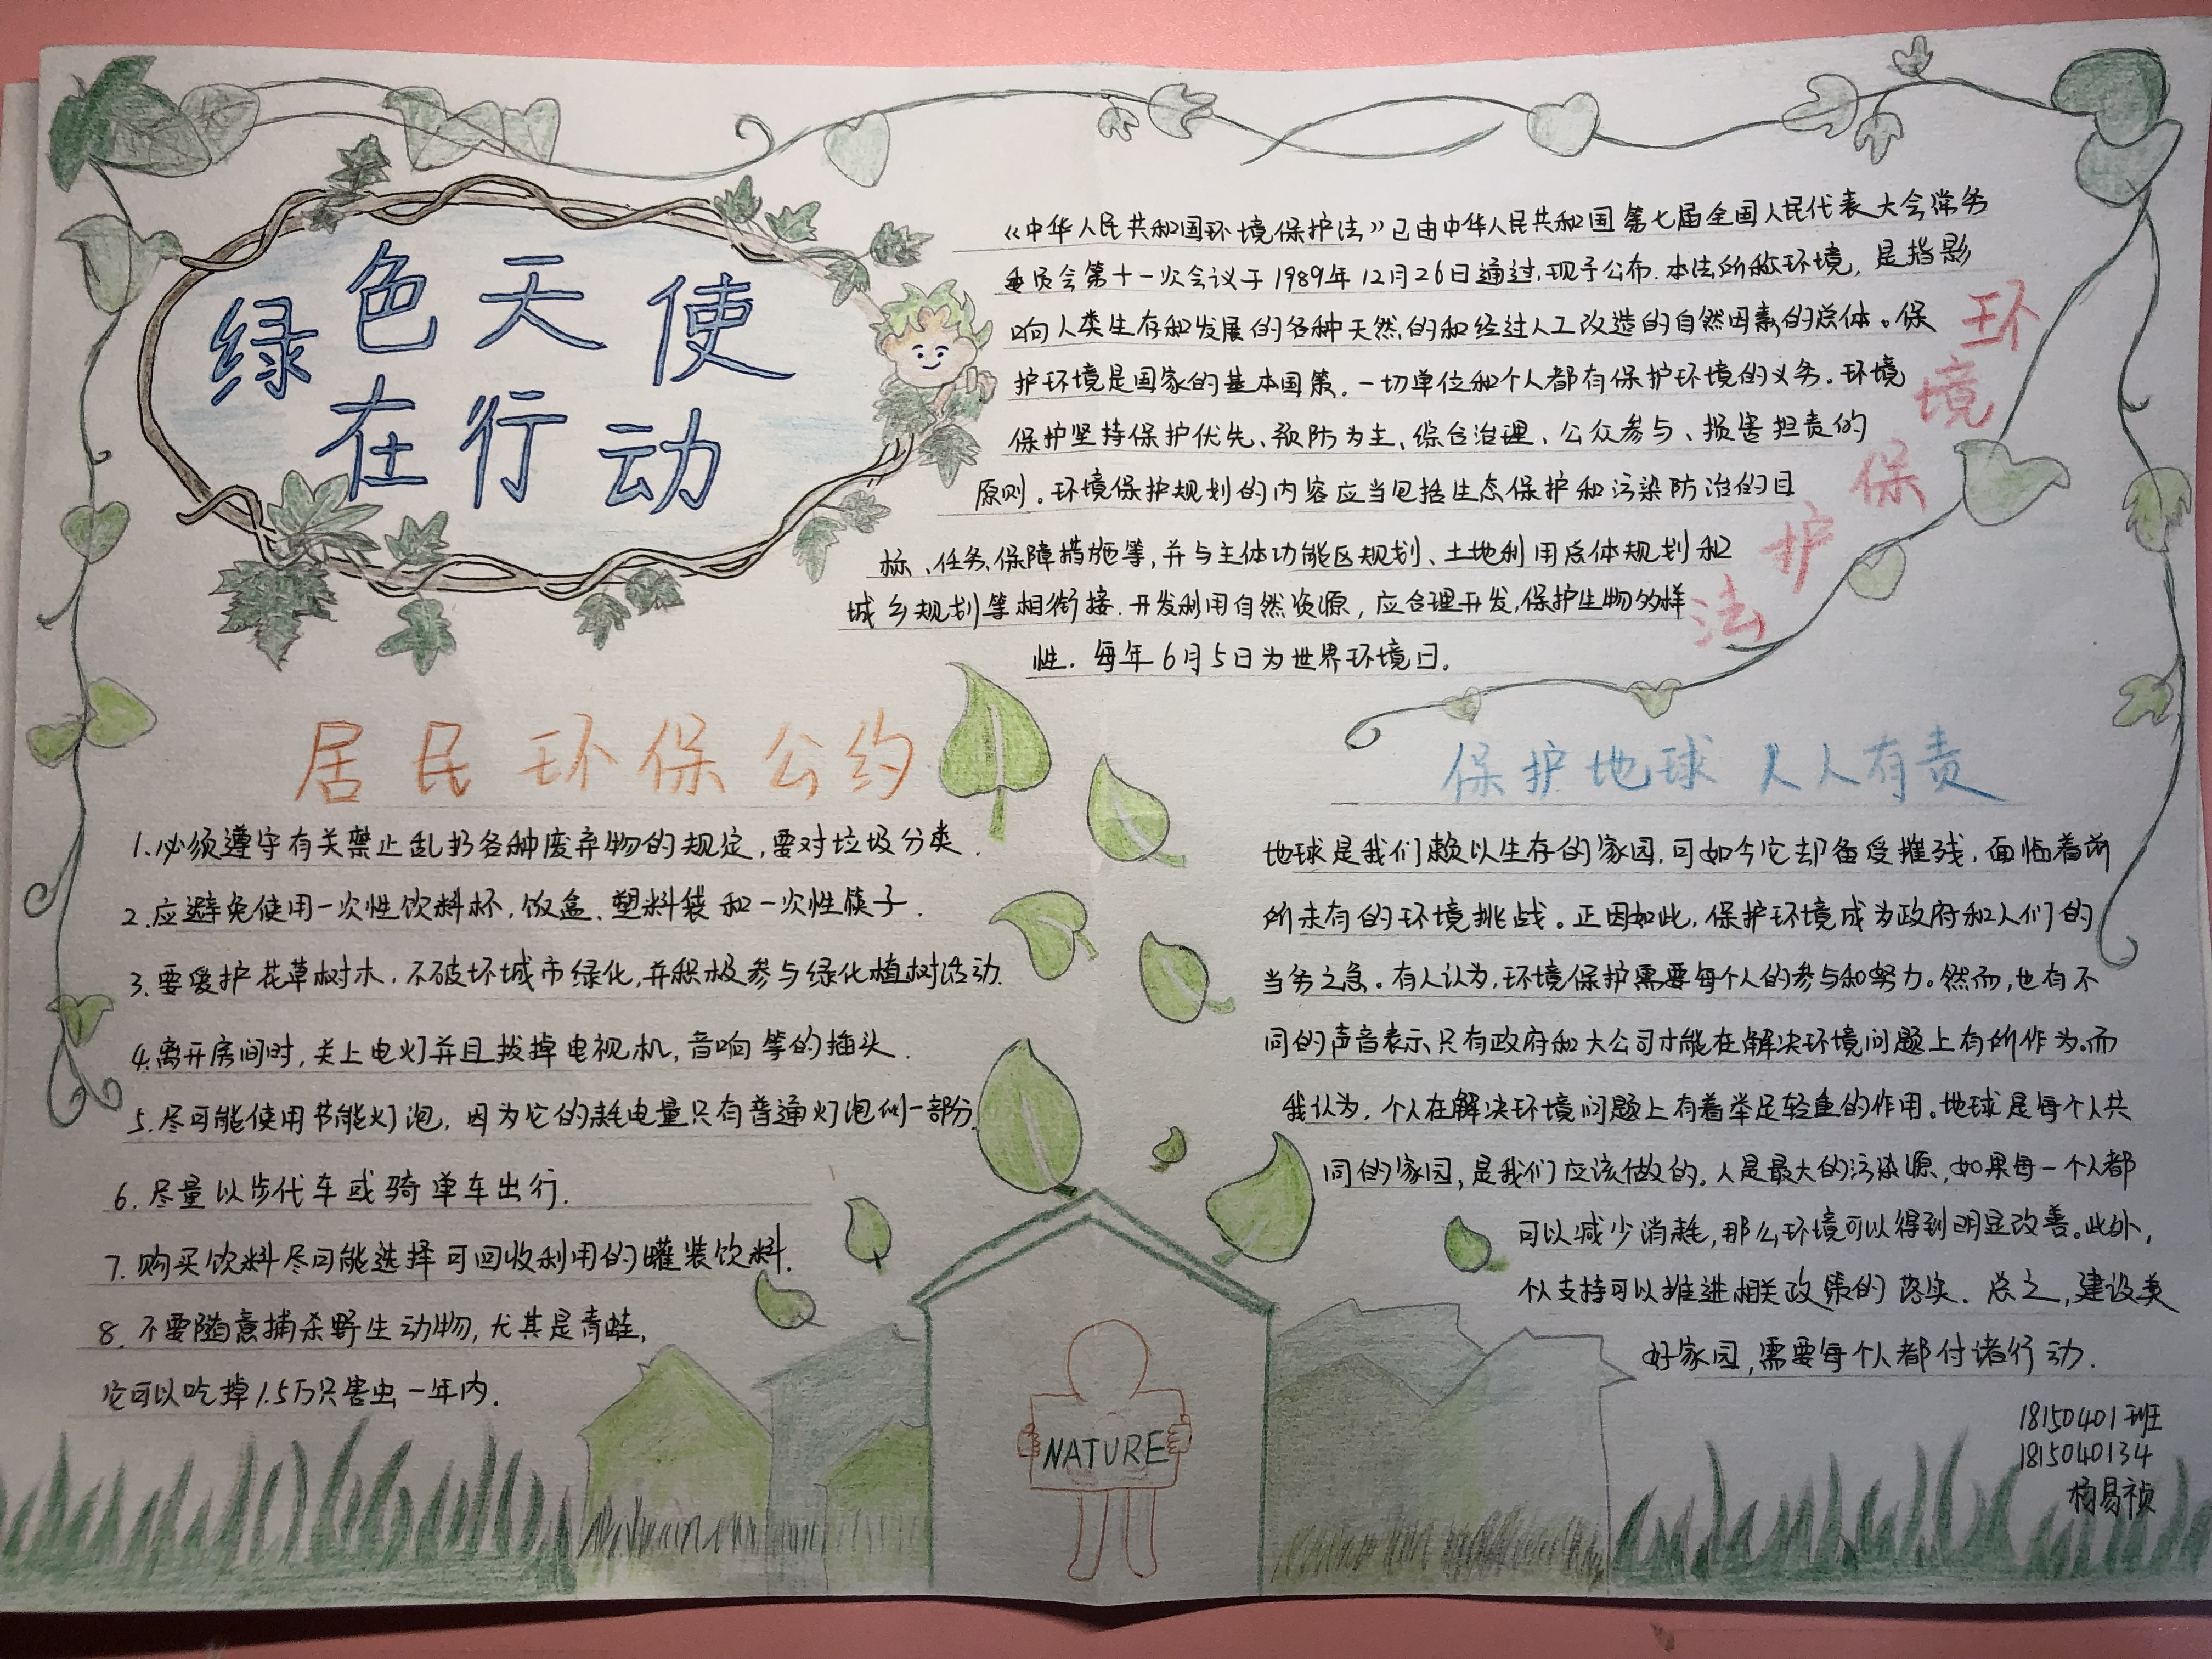 绿色天使
在行动
《中华人民共和国环境保护法》已由中华人民共和国第七届全国人民代表大会常务
委员会第十一次会议于1989年12月26日通过,现予公布.本法所称环境,是指影
响人类生存和发展的各种天然的和经过人工改造的自然因素的总体。保
护环境是国家的基本国策.一切单位和个人都有保护环境的义务。环境
保护坚持保护优先、预防为主、综合治理、公众参与、损害担责的
原则。环境保护规划的内容应当包括生态保护和污染防治的目
标、任务、保障措施等,并与主体功能区规划、土地利用总体规划和
城乡规划等相衔接.开发利用自然资源,应合理开发,保护生物多样
性.每年6月5日为世界环境日。
环境保护法
居民环保公约
1.必须遵守有关禁止乱扔各种废弃物的规定,要对垃圾分类.
2.应避免使用一次性饮料杯.饭盒、塑料袋和一次性筷子.
3.要爱护花草树木.不破坏城市绿化,并积极参与绿化植树活动.
4.离开房间时,关上电灯并且拔掉电视机,音响等的插头.
5.尽可能使用节能灯泡.因为它的耗电量只有普通灯泡的一部分.
6.尽量以步代车或骑单车出行.
7.购买饮料尽可能选择可回收利用的罐装饮料.
8.不要随意捕杀野生动物,尤其是青蛙,
它可以吃掉1.5万只害虫一年内.
保护地球 人人有责
地球是我们赖以生存的家园,可如今它却备受摧残,面临着前
所未有的环境挑战。正因如此,保护环境成为政府和人们的
当务之急。有人认为,环境保护需要每个人的参与和努力。然而,也有不
同的声音表示只有政府和大公司才能在解决环境问题上有所作为.而
我认为,个人在解决环境问题上有着举足轻重的作用。地球是每个人共
同的家园,是我们应该做的.人是最大的污染源,如果每一个人都
可以减少消耗,那么环境可以得到明显改善。此外,
个人支持可以推进相关政策的落实.总之,建设美
好家园,需要每个人都付诸行动.
18150401班
1815040134
杨易祯
NATURE